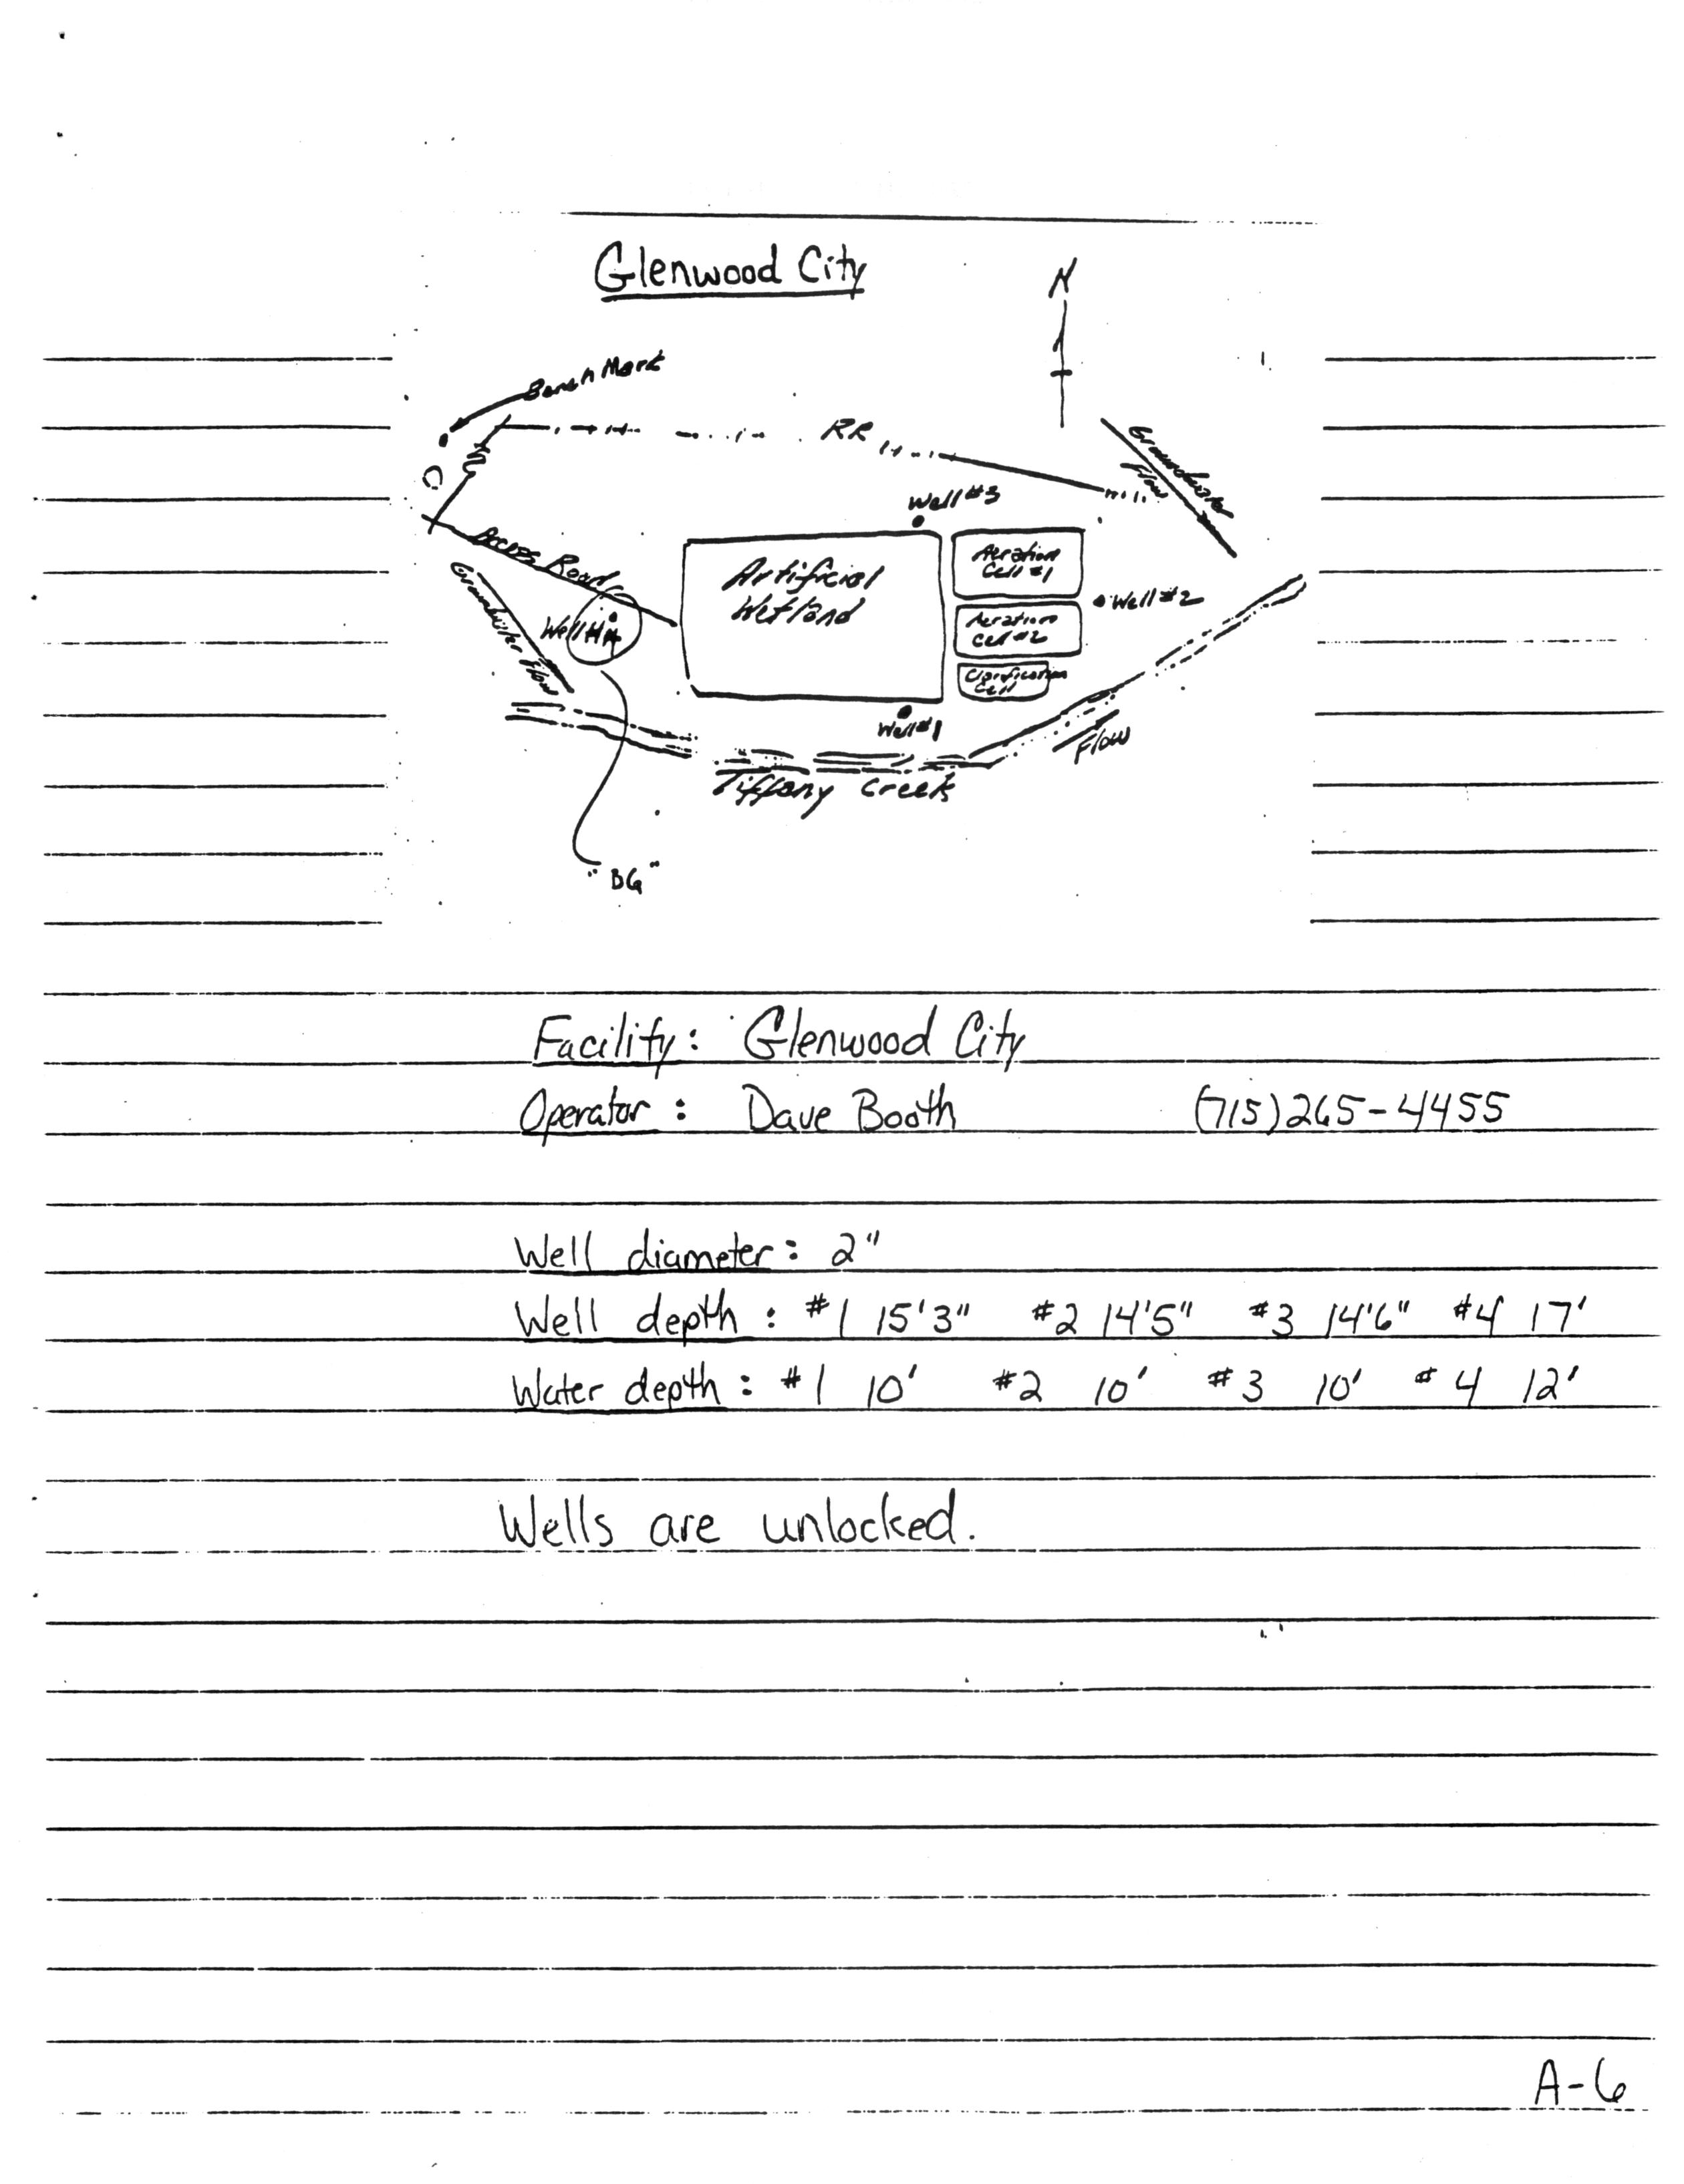 Glenwood City
N
Bench Mark
RR
Groundwater
Flow
Well #3
Access Road
Artificial
Wetland
Aeration
Cell #1
Well #2
Aeration
Cell #2
Groundwater Flow
Well #4
Clarification
Cell
Well #1
Flow
Tiffany Creek
"BG"
Facility: Glenwood City
Operator: Dave Booth (715)265-4455
Well diameter: 2"
Well depth: #1 15'3" #2 14'5" #3 14'6" #4 17'
Water depth: #1 10' #2 10' #3 10' #4 12'
Wells are unlocked.
A-6